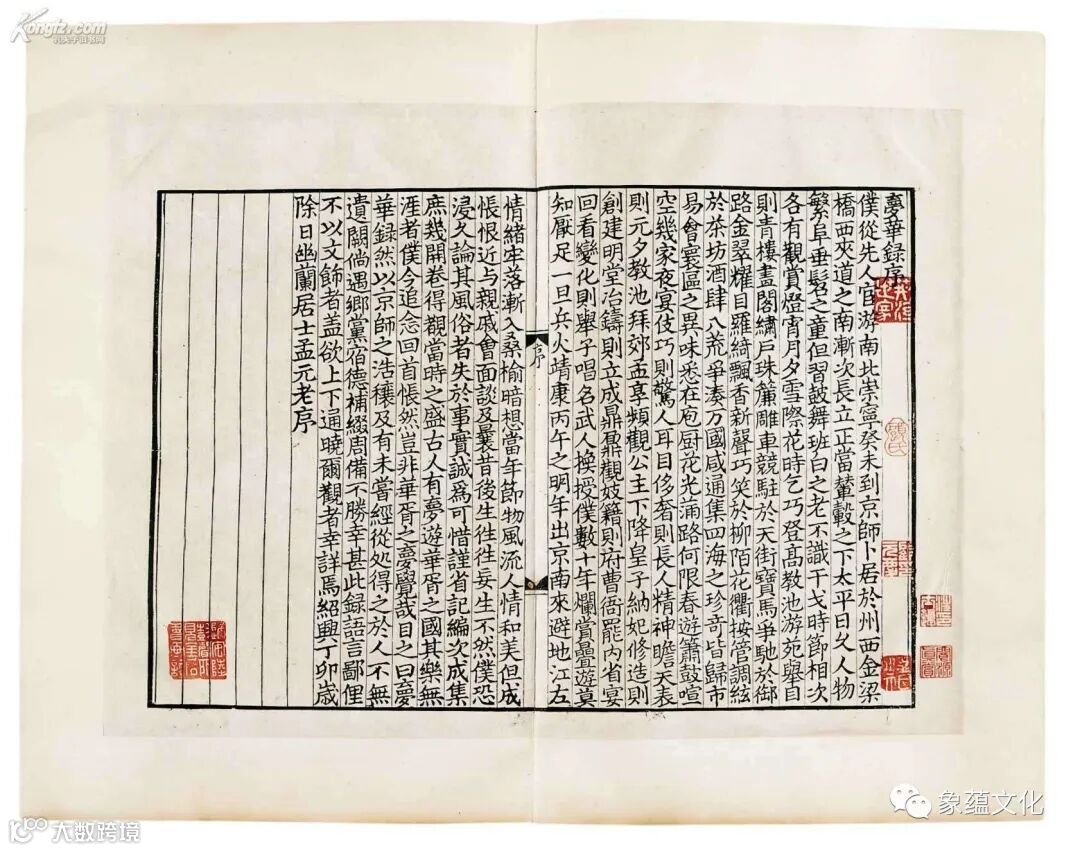 夢華録序
僕從先人宦游南北崇寧癸未到京師卜居於州西金梁
橋西夾道之南漸次長立正當輦轂之下太平日久人物
繁阜垂髫之童但習鼓舞班白之老不識干戈時節相次
各有觀賞燈宵月夕雪際花時乞巧登高教池游苑舉目
則青樓畫閣繡戶珠簾雕車競駐於天街寶馬爭馳於御
路金翠耀目羅綺飄香新聲巧笑於柳陌花衢按管調絃
於茶坊酒肆八荒爭湊万國咸通集四海之珍奇皆歸市
易會寰區之異味悉在庖厨花光滿路何限春遊簫鼓喧
空幾家夜宴伎巧則驚人耳目侈奢則長人精神瞻天表
則元夕教池拜郊孟享頻觀公主下降皇子納妃修造則
創建明堂冶鑄則立成鼎鼐觀妓籍則府曹衙罷内省宴
回看變化則舉子唱名武人換授僕數十年爛賞疊遊莫
知厭足一旦兵火靖康丙午之明年出京南來避地江左
序
情緒牢落漸入桑榆暗想當年節物風流人情和美但成
悵恨近与親戚會面談及曩昔後生往往妄生不然僕恐
浸久論其風俗者失於事實誠爲可惜謹省記編次成集
庶幾開卷得觀當時之盛古人有夢遊華胥之國其樂無
涯者僕今追念回首悵然豈非華胥之夢覺哉目之曰夢
華録然以京師之浩穰及有未嘗經從處得之於人不無
遺闕倘遇鄉黨宿德補綴周備不勝幸甚此録語言鄙俚
不以文飾者盖欲上下通曉爾觀者幸詳焉紹興丁卯歲
除日幽蘭居士孟元老序
Kongfz.com
孔夫子旧书网
象蕴文化
大数跨境